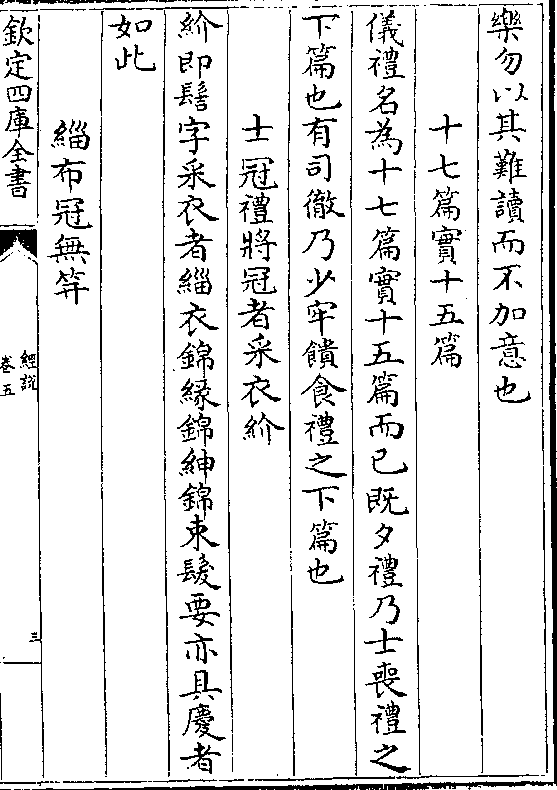 樂勿以其難讀而不加意也
十七篇實十五篇
儀禮名為十七篇實十五篇而已既夕禮乃士喪禮之
下篇也有司徹乃少牢饋食禮之下篇也
士冠禮將冠者采衣紒
紒即髻字采衣者緇衣錦緣錦紳錦束髮要亦具慶者
如此
緇布冠無笄
欽定四庫全書
經説
卷五
三